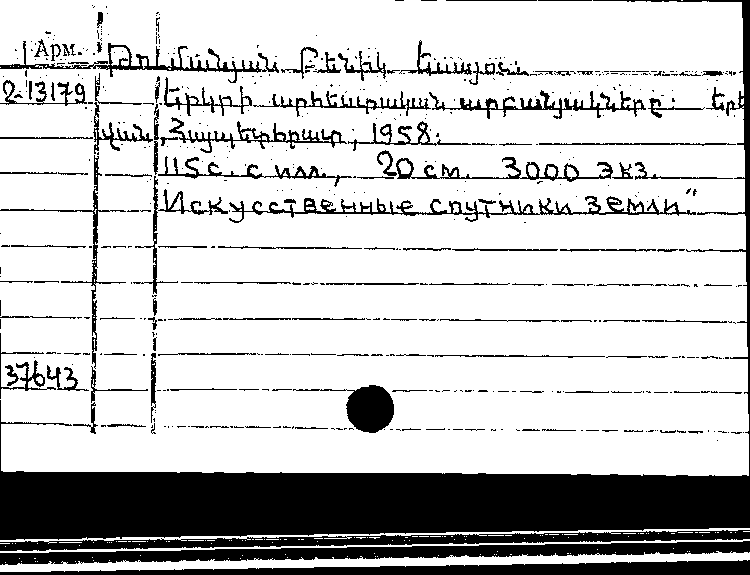 Арм. Թումանյան Բենիկ Եսայու
2-13179 Երկրի արհեստական արբանյակները: Երե
վան, Հայպետհրատ, 1958.
115 с. с илл., 20 см. 3000 экз.
Искусственные спутники Земли"
37643